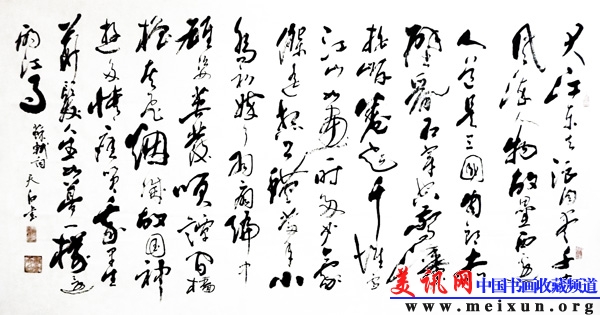 大江东去浪淘尽千古
风流人物故垒西边
人道是三国周郎赤
壁乱石穿空惊涛
拍岸卷起千堆雪
江山如画一时多少豪
杰遥想公瑾当年小
乔初嫁了羽扇纶巾
雄姿英发笑谈间樯
橹灰飞烟灭故国神
游多情应笑我早生
华发人生如梦一樽还
酹江月
苏轼词
美讯网 中国书画收藏频道
www.meixun.org